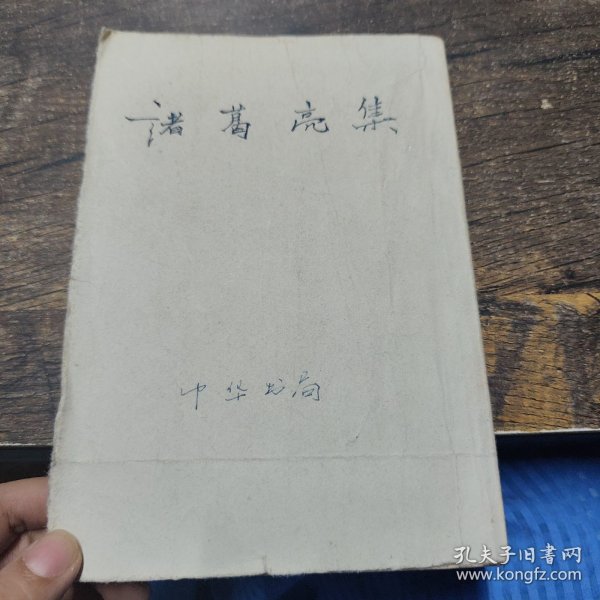 諸葛亮集
中华书局
孔夫子旧书网
www.kongfz.com